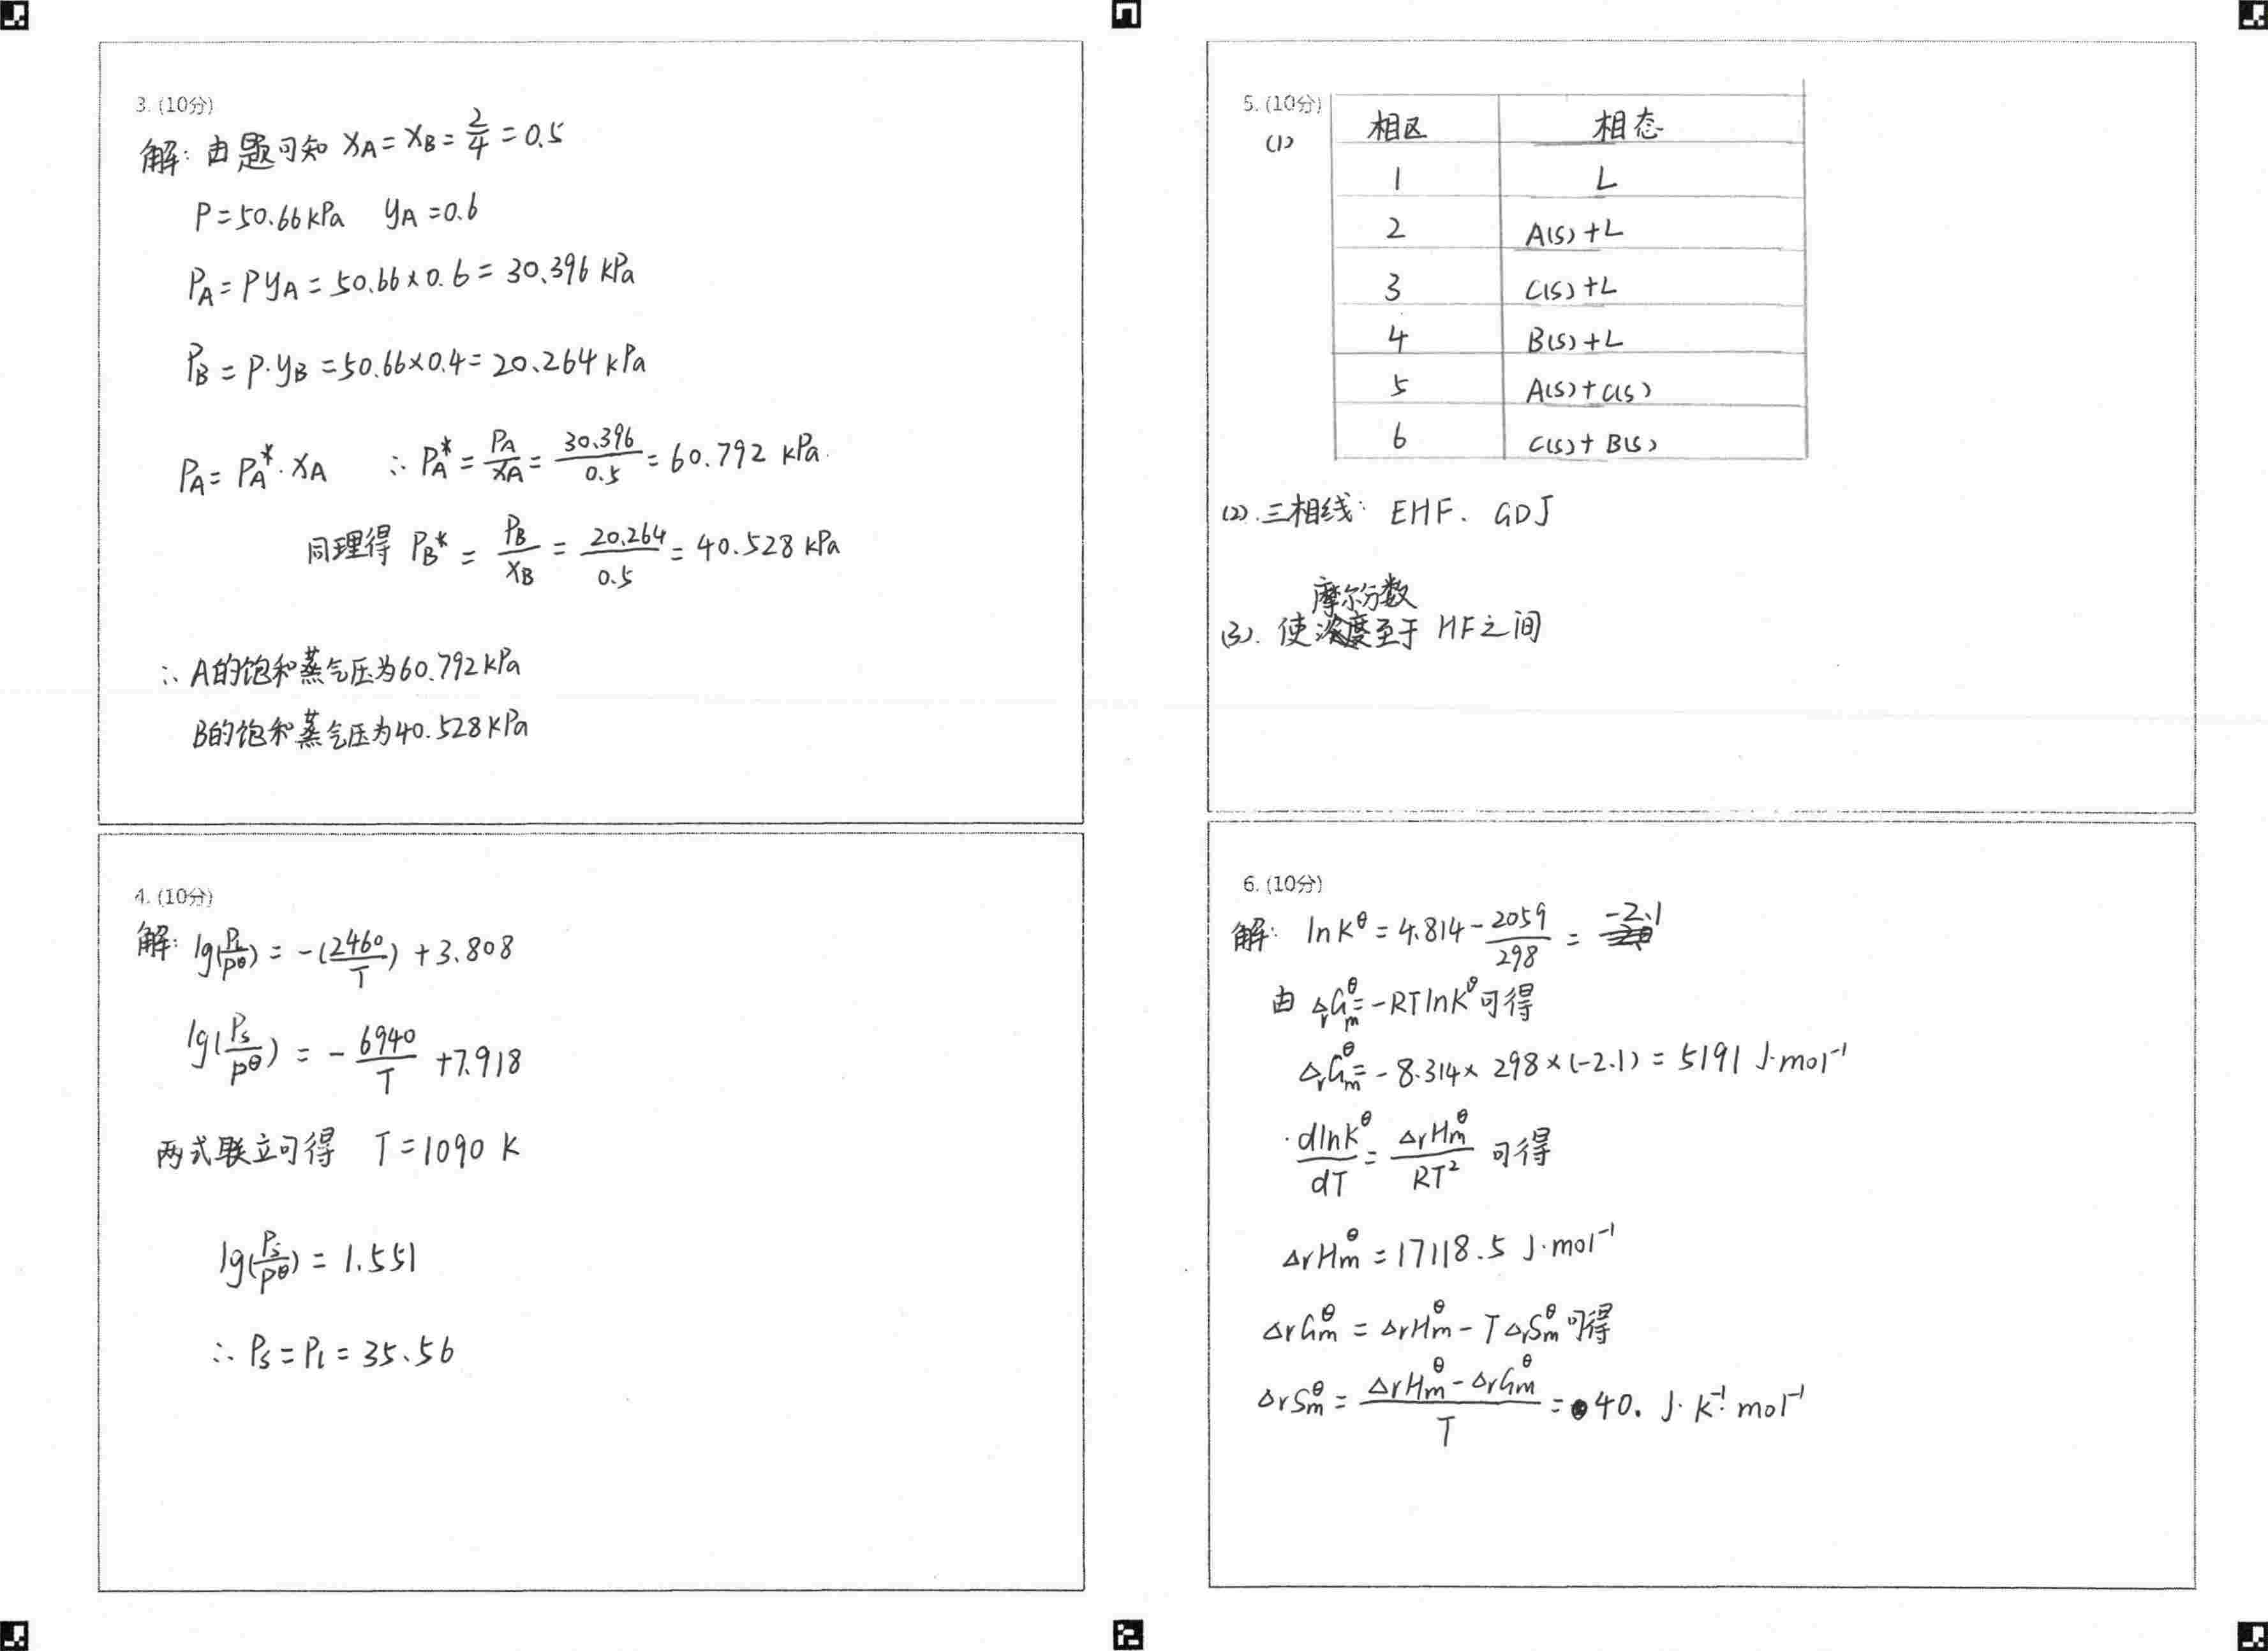 3. (10分)
解: 由题可知 xA = xB = 2/4 = 0.5
P = 50.66 kPa yA = 0.6
PA = P yA = 50.66 × 0.6 = 30.396 kPa
PB = P·yB = 50.66 × 0.4 = 20.264 kPa
PA = PA*·xA ∴ PA* = PA/xA = 30.396/0.5 = 60.792 kPa.
同理得 PB* = PB/xB = 20.264/0.5 = 40.528 kPa
∴ A的饱和蒸气压为60.792 kPa
B的饱和蒸气压为40.528 kPa
4. (10分)
解: lg(PL/Pθ) = -(2460/T) + 3.808
lg(Ps/Pθ) = - 6940/T + 7.918
两式联立可得 T = 1090 K
lg(Ps/Pθ) = 1.551
∴ Ps = PL = 35.56
5. (10分)
(1)
相区 相态
1 L
2 A(s) + L
3 C(s) + L
4 B(s) + L
5 A(s) + C(s)
6 C(s) + B(s)
(2). 三相线: EHF、GDJ
(3). 使摩尔分数至于 HF之间
6. (10分)
解: lnKθ = 4.814 - 2059/298 = -2.1
由 ΔrGmθ = -RTlnKθ 可得
ΔrGmθ = - 8.314 × 298 × (-2.1) = 5191 J·mol⁻¹
dlnKθ/dT = ΔrHmθ/RT² 可得
ΔrHmθ = 17118.5 J·mol⁻¹
ΔrGmθ = ΔrHmθ - TΔrSmθ 可得
ΔrSmθ = (ΔrHmθ - ΔrGmθ)/T = 40. J·K⁻¹·mol⁻¹